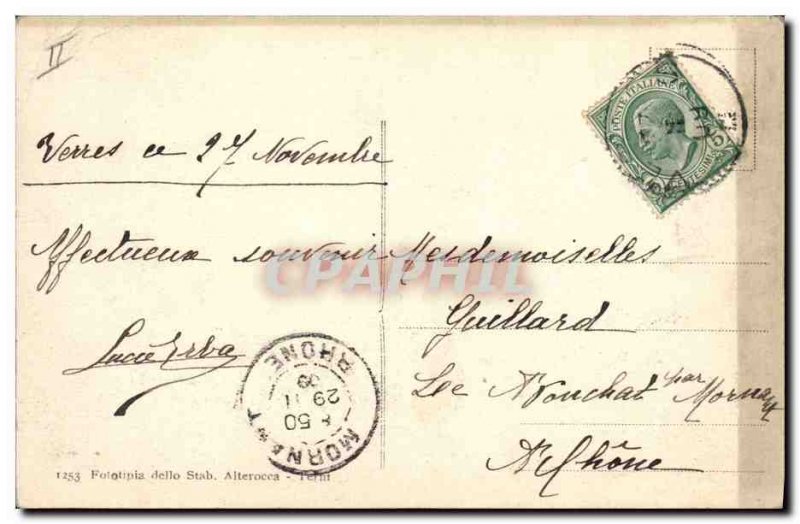 II
Verres ce 27 Novembre
Affectueux souvenir
Lucie Erba
POSTE ITALIANE
Mesdemoiselles
Guillard
Le par Mornant
Rhône
MORNANT
8 50
29 11
09
RHONE
CPAPHIL
1253 Fototipia dello Stab. Alterocca - Terni